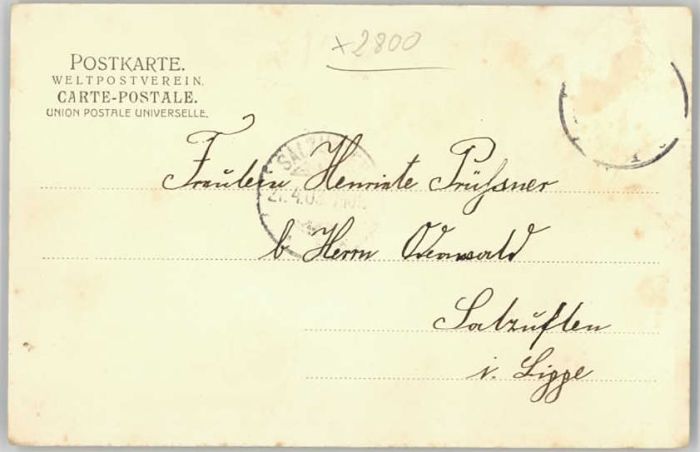 ×2800
POSTKARTE.
WELTPOSTVEREIN.
CARTE-POSTALE.
UNION POSTALE UNIVERSELLE.
Fräulein Henriete Prüssner
b Herrn Odenwald
Salzuflen
i. Lippe
SALZU
21.4.03